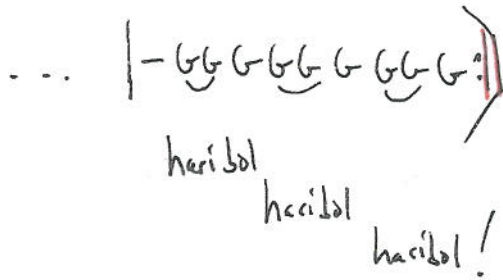 ... |- GG G GG G GG G :||
haribol
haribol
haribol!